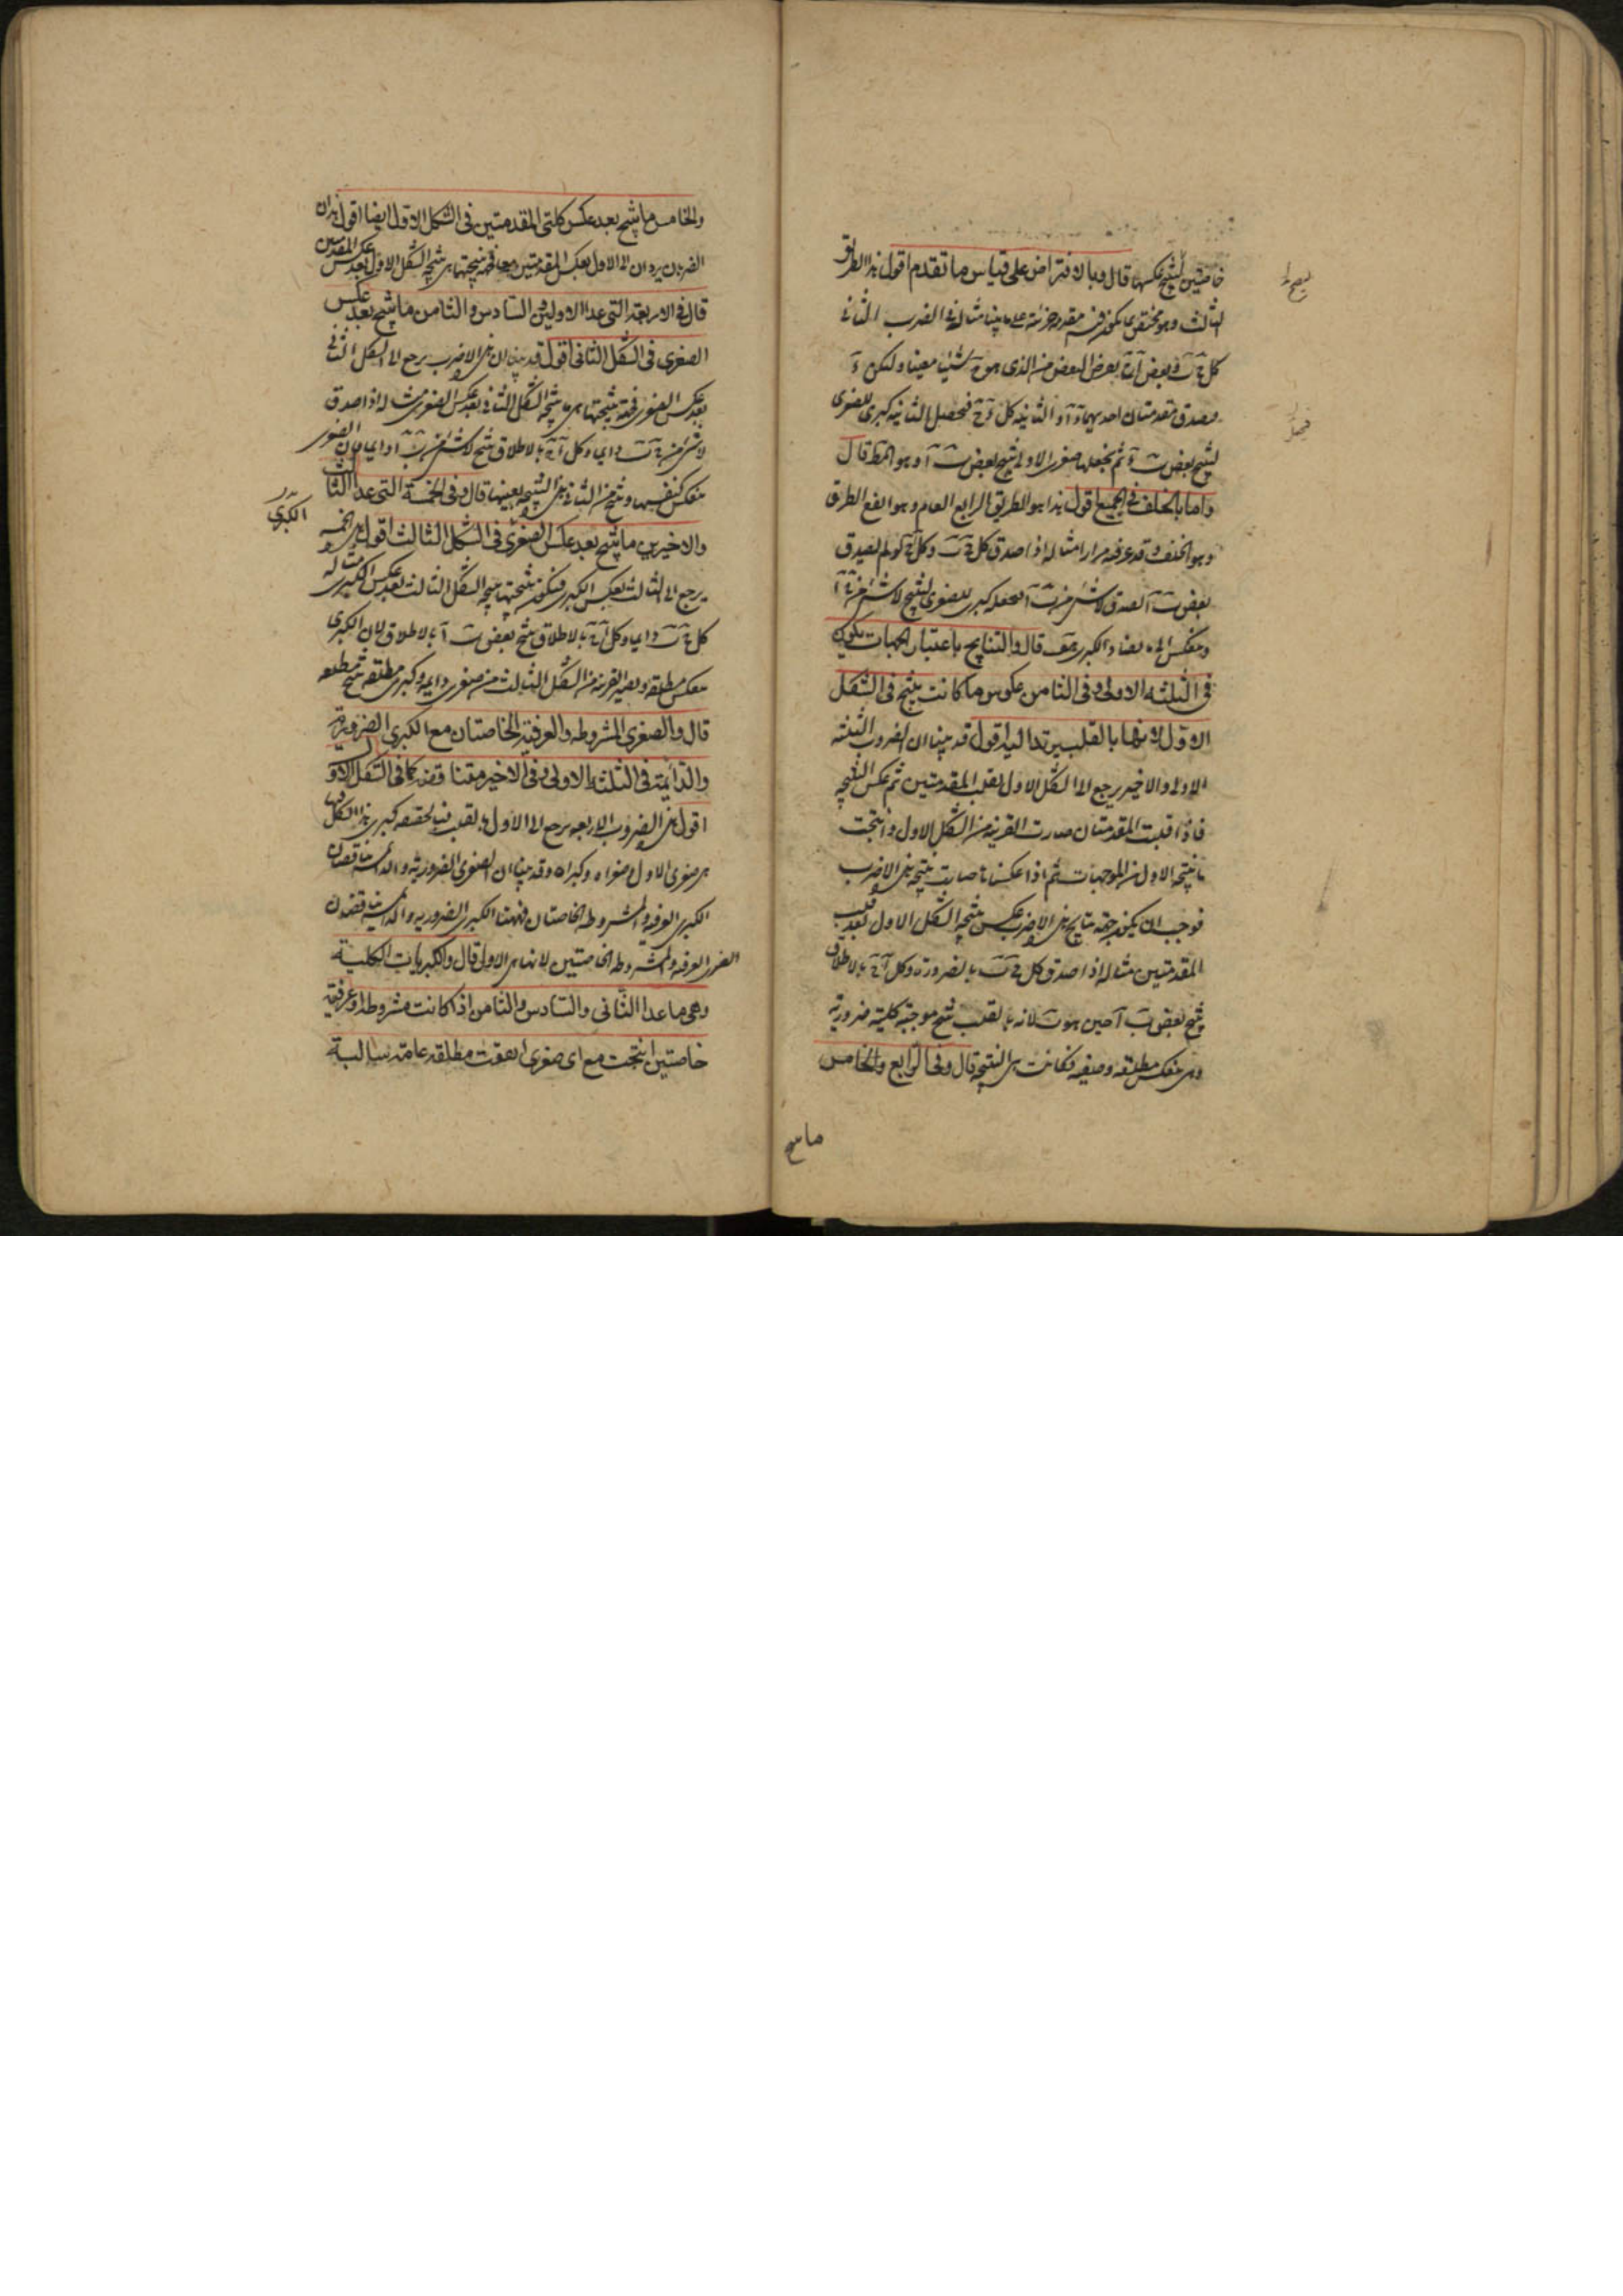 خاصتين لينتج عكسها قال وبالافتراض على قياس ما تقدم اقول هذا الطريق
الثالث وهو مختص بما يكون فيه مقدمة جزئية على ما بينا مثاله في الضرب الثاني
كل ج ب وبعض آ ج يفرض البعض من الذي هو ج شيئا معينا وليكن د
فصدق مقدمتان احديهما د آ والثانية كل د ج فنجعل الثانية كبرى للصغرى
لينتج بعض ب د ثم نجعلها صغرى الاولى ينتج بعض ب آ وهو المط قال
واما بالخلف في الجميع اقول هذا هو الطريق الرابع العام وهو انفع الطرق
وهو الخلف وقد عرفته مرارا مثاله اذا صدق كل ج ب وكل آ ج لو لم يصدق
بعض ب آ لصدق لا شئ من ب آ نجعله كبرى للصغرى لينتج لا شئ من ج آ
وينعكس الى ما يضاد الكبرى هف قال والنتايج باعتبار الجهات يكون
في الثلثة الاولى وفي الثامن عكوس ما كانت ينتج في الشكل
الاول لانها بالقلب يرتد اليه اقول قد بينا ان الضروب الثلثة
الاولى والاخير يرجع الى الشكل الاول بقلب المقدمتين ثم عكس النتيجة
فاذا قلبت المقدمتان صارت القرينة من الشكل الاول وانتجت
ما ينتجه الاول من الموجهات ثم اذا عكسناها صارت نتيجة هذه الاضرب
فوجب ان يكون جهة نتايج هذه الاضرب عكس نتيجة الشكل الاول بعد قلب
المقدمتين مثاله اذا صدق كل ج ب بالضرورة وكل آ ج بالاطلاق
ينتج بعض ب آ حين هو ب لانه بالقلب ينتج موجبة كلية ضرورية
وهي تنعكس مطلقة وصفية فكانت هي النتيجة قال وفي الرابع والخامس
ما ينتج
والخامس ما ينتج بعد عكس كلتي المقدمتين في الشكل الاول ايضا اقول هذان
الضربان يردان الى الاول بعكس المقدمتين معا فجهة نتيجتهما هي نتيجة الشكل الاول بعد عكس المقدمتين
قال في الاربعة التي عدا الاوليين السادس والثامن ما ينتج بعد عكس
الصغرى في الشكل الثاني اقول قد بينا ان هذه الاضرب يرجع الى الشكل الثاني
بعد عكس الصغرى فجهة نتيجتها هي ما ينتجه الشكل الثاني بعد عكس الصغرى مثاله اذا صدق
لا شئ من ج ب دايما وكل آ ج بالاطلاق ينتج لا شئ من ب آ دايما لان الصغرى
تنعكس كنفسها وينتج من الثاني هذه النتيجة بعينها قال وفي الخمسة التي عدا الثالث
الكبرى
والاخيرين ما ينتج بعد عكس الصغرى في الشكل الثالث اقول هذه الخمسة
يرجع الى الثالث بعكس الكبرى فيكون نتيجتها نتيجة الشكل الثالث بعد عكس الكبرى مثاله
كل ج ب دايما وكل آ ج بالاطلاق ينتج بعض ب آ بالاطلاق لان الكبرى
تنعكس مطلقة ويصير القرينة من الشكل الثالث من صغرى دايمة وكبرى مطلقة ينتج مطلقة
قال والصغرى المشروطة والعرفية الخاصتان مع الكبرى الضرورية
والدائمة في الثلثة الاولى وفي الاخير متناقضة كما في الشكل الاول
اقول هذه الضروب الاربعة يرجع الى الاول بالقلب فبالحقيقة كبرى هذا الشكل
هي صغرى الاول وصغراه وكبراه وقد بينا ان الصغرى الضرورية والدائمة تناقضان
الكبرى العرفية والمشروطة الخاصتان فههنا الكبرى الضرورية والدائمة تناقضان
الصغرى العرفية والمشروطة الخاصتين لانها هي الاول قال والكبريات الكلية
وهي ما عدا الثاني والسادس والثامن اذا كانت مشروطة او عرفية
خاصتين انتجت مع اى صغرى اتفقت مطلقة عامة سالبة